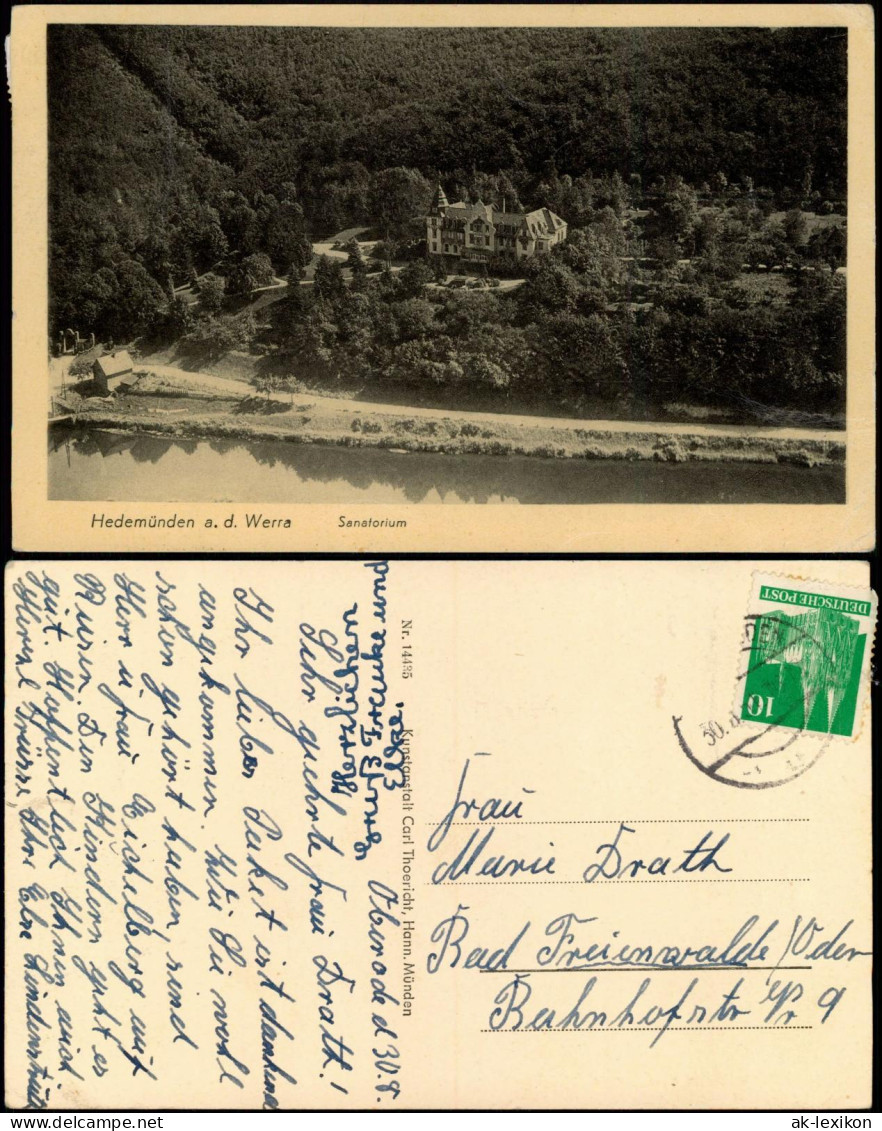 Hedemünden a. d. Werra Sanatorium
Oberode d 30.8.
Sehr geehrte Frau Drath!
Ihr liebes Paket ist dankend
angekommen. Wie Sie wohl
schon gehört haben, sind
Herr u Frau Eichelberg mit
Ruin. Den Kindern geht es
gut. Hoffentlich Ihnen auch
Herzl Grüsse Ihre Else
Herzlichen
Gruss Franke und
Else
Nr. 14485 Kunstanstalt Carl Thoericht, Hann. Münden
DEUTSCHE POST
10
30.8
Frau
Marie Drath
Bad Freienwalde/Oder
Bahnhofstr 9
ak-lexikon